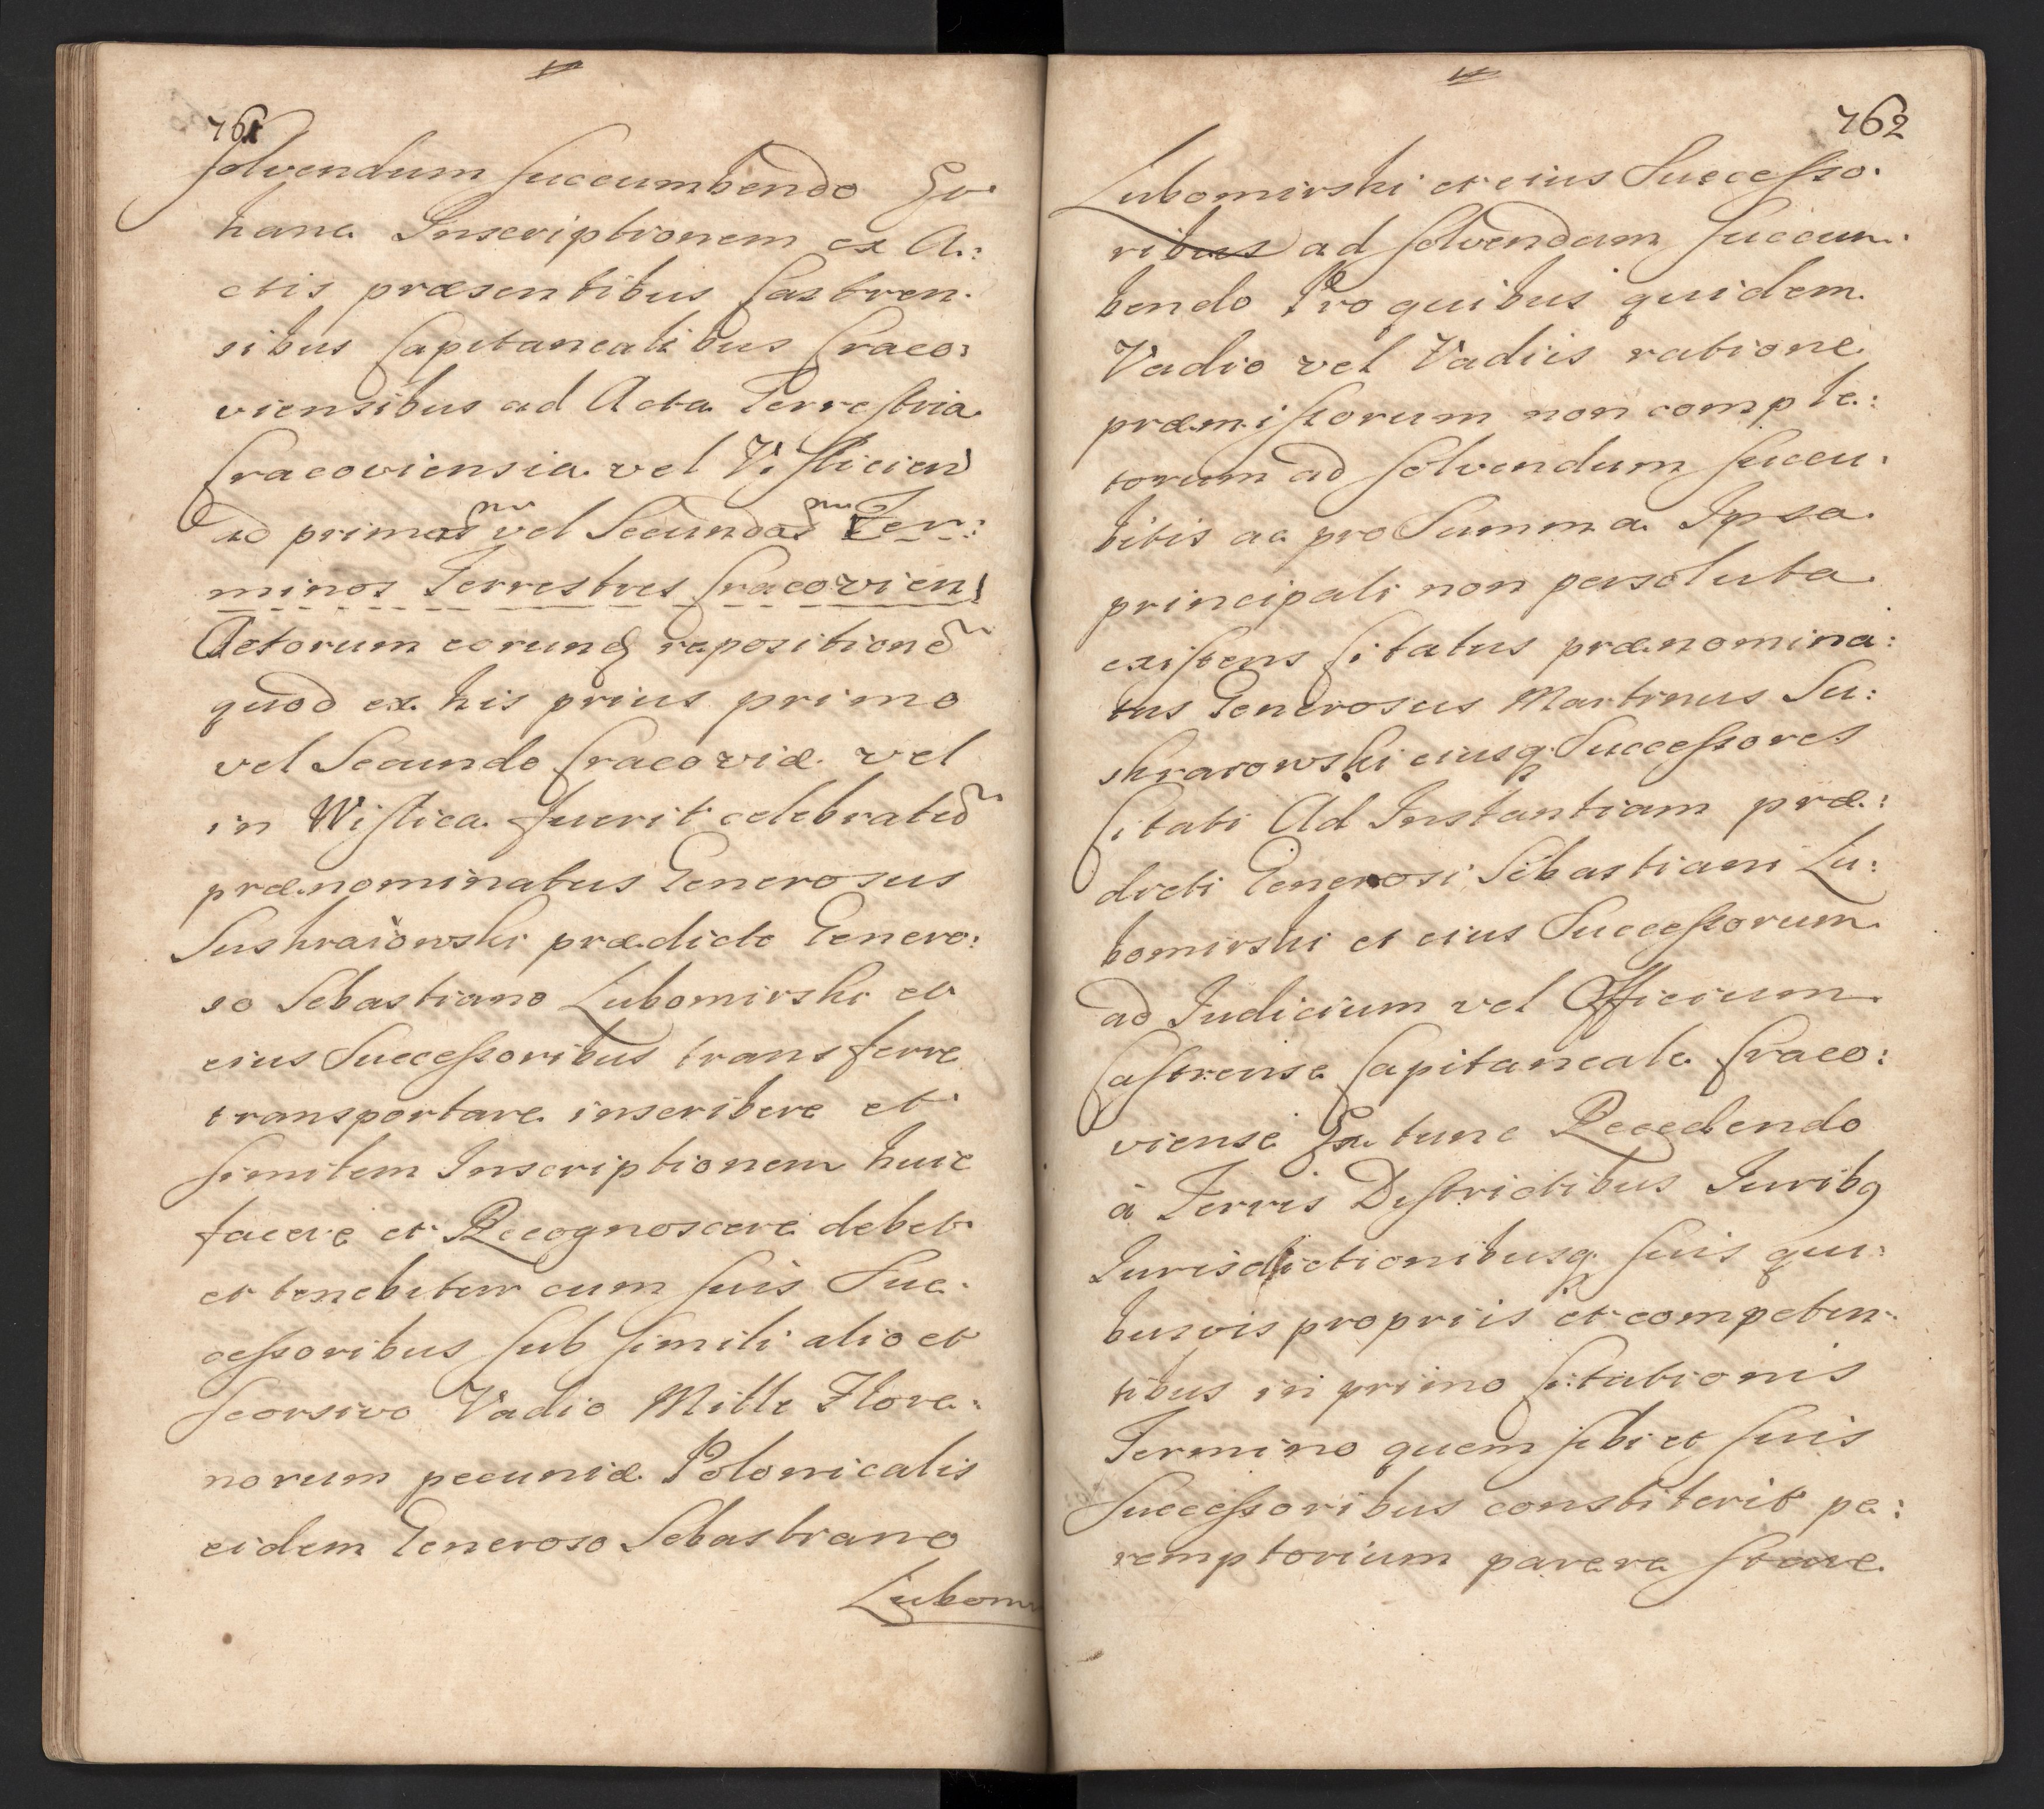 761
solvendum succumbendo Et
hanc Inscriptionem ex A:
ctis præsentibus Castren.
sibus Capitanealibus Craco:
viensibus ad Acta Terrestria
Cracoviensia vel Visliciens
ad primas vel Secundas Ter:
minos Terrestres Cracovien
Actorum eorundꝗ repositione
quod ex his prius primo
vel Secundo Cracoviæ vel
in Wislica fuerit celebrata
prænominatus Generosus
Suskraiowski prædicto Genero:
so Sebastiano Lubomirski et
eius Successoribus transferre
transportare inscribere et
similem Inscriptionem huic
facere et Recognoscere debet
et tenebitur cum suis Suc.
cessoribus sub simili alio et
seorsivo Vadio Mille Flore:
norum pecuniæ Polonicalis
eidem Generoso Sebastiano
Lubomi
762
Lubomirski et eius Successo.
ribus ad solvendum succum.
bendo Pro quibus quidem
Vadio vel Vadiis ratione
præmissorum non comple:
torum ad solvendum succu.
bitis ac pro Summa Ipsa
principali non persoluta
existens Citatus prænomina:
tus Generosus Martinus Su:
skraiowski eiusq Successores
Citati Ad Instantiam præ:
dicti Generosi Sebastiani Lu:
bomirski et eius Successorum
ad Iudicium vel Officium
Castrense Capitaneale Craco:
viense Ex tunc Recedendo
à Terris Districtibus Iuribꝯ
Iurisdictionibusq suis qui:
busvis propriis et competen.
tibus in primo Citationis
Termino quem sibi et suis
Successoribus constiterit pe:
remptorium parere stare